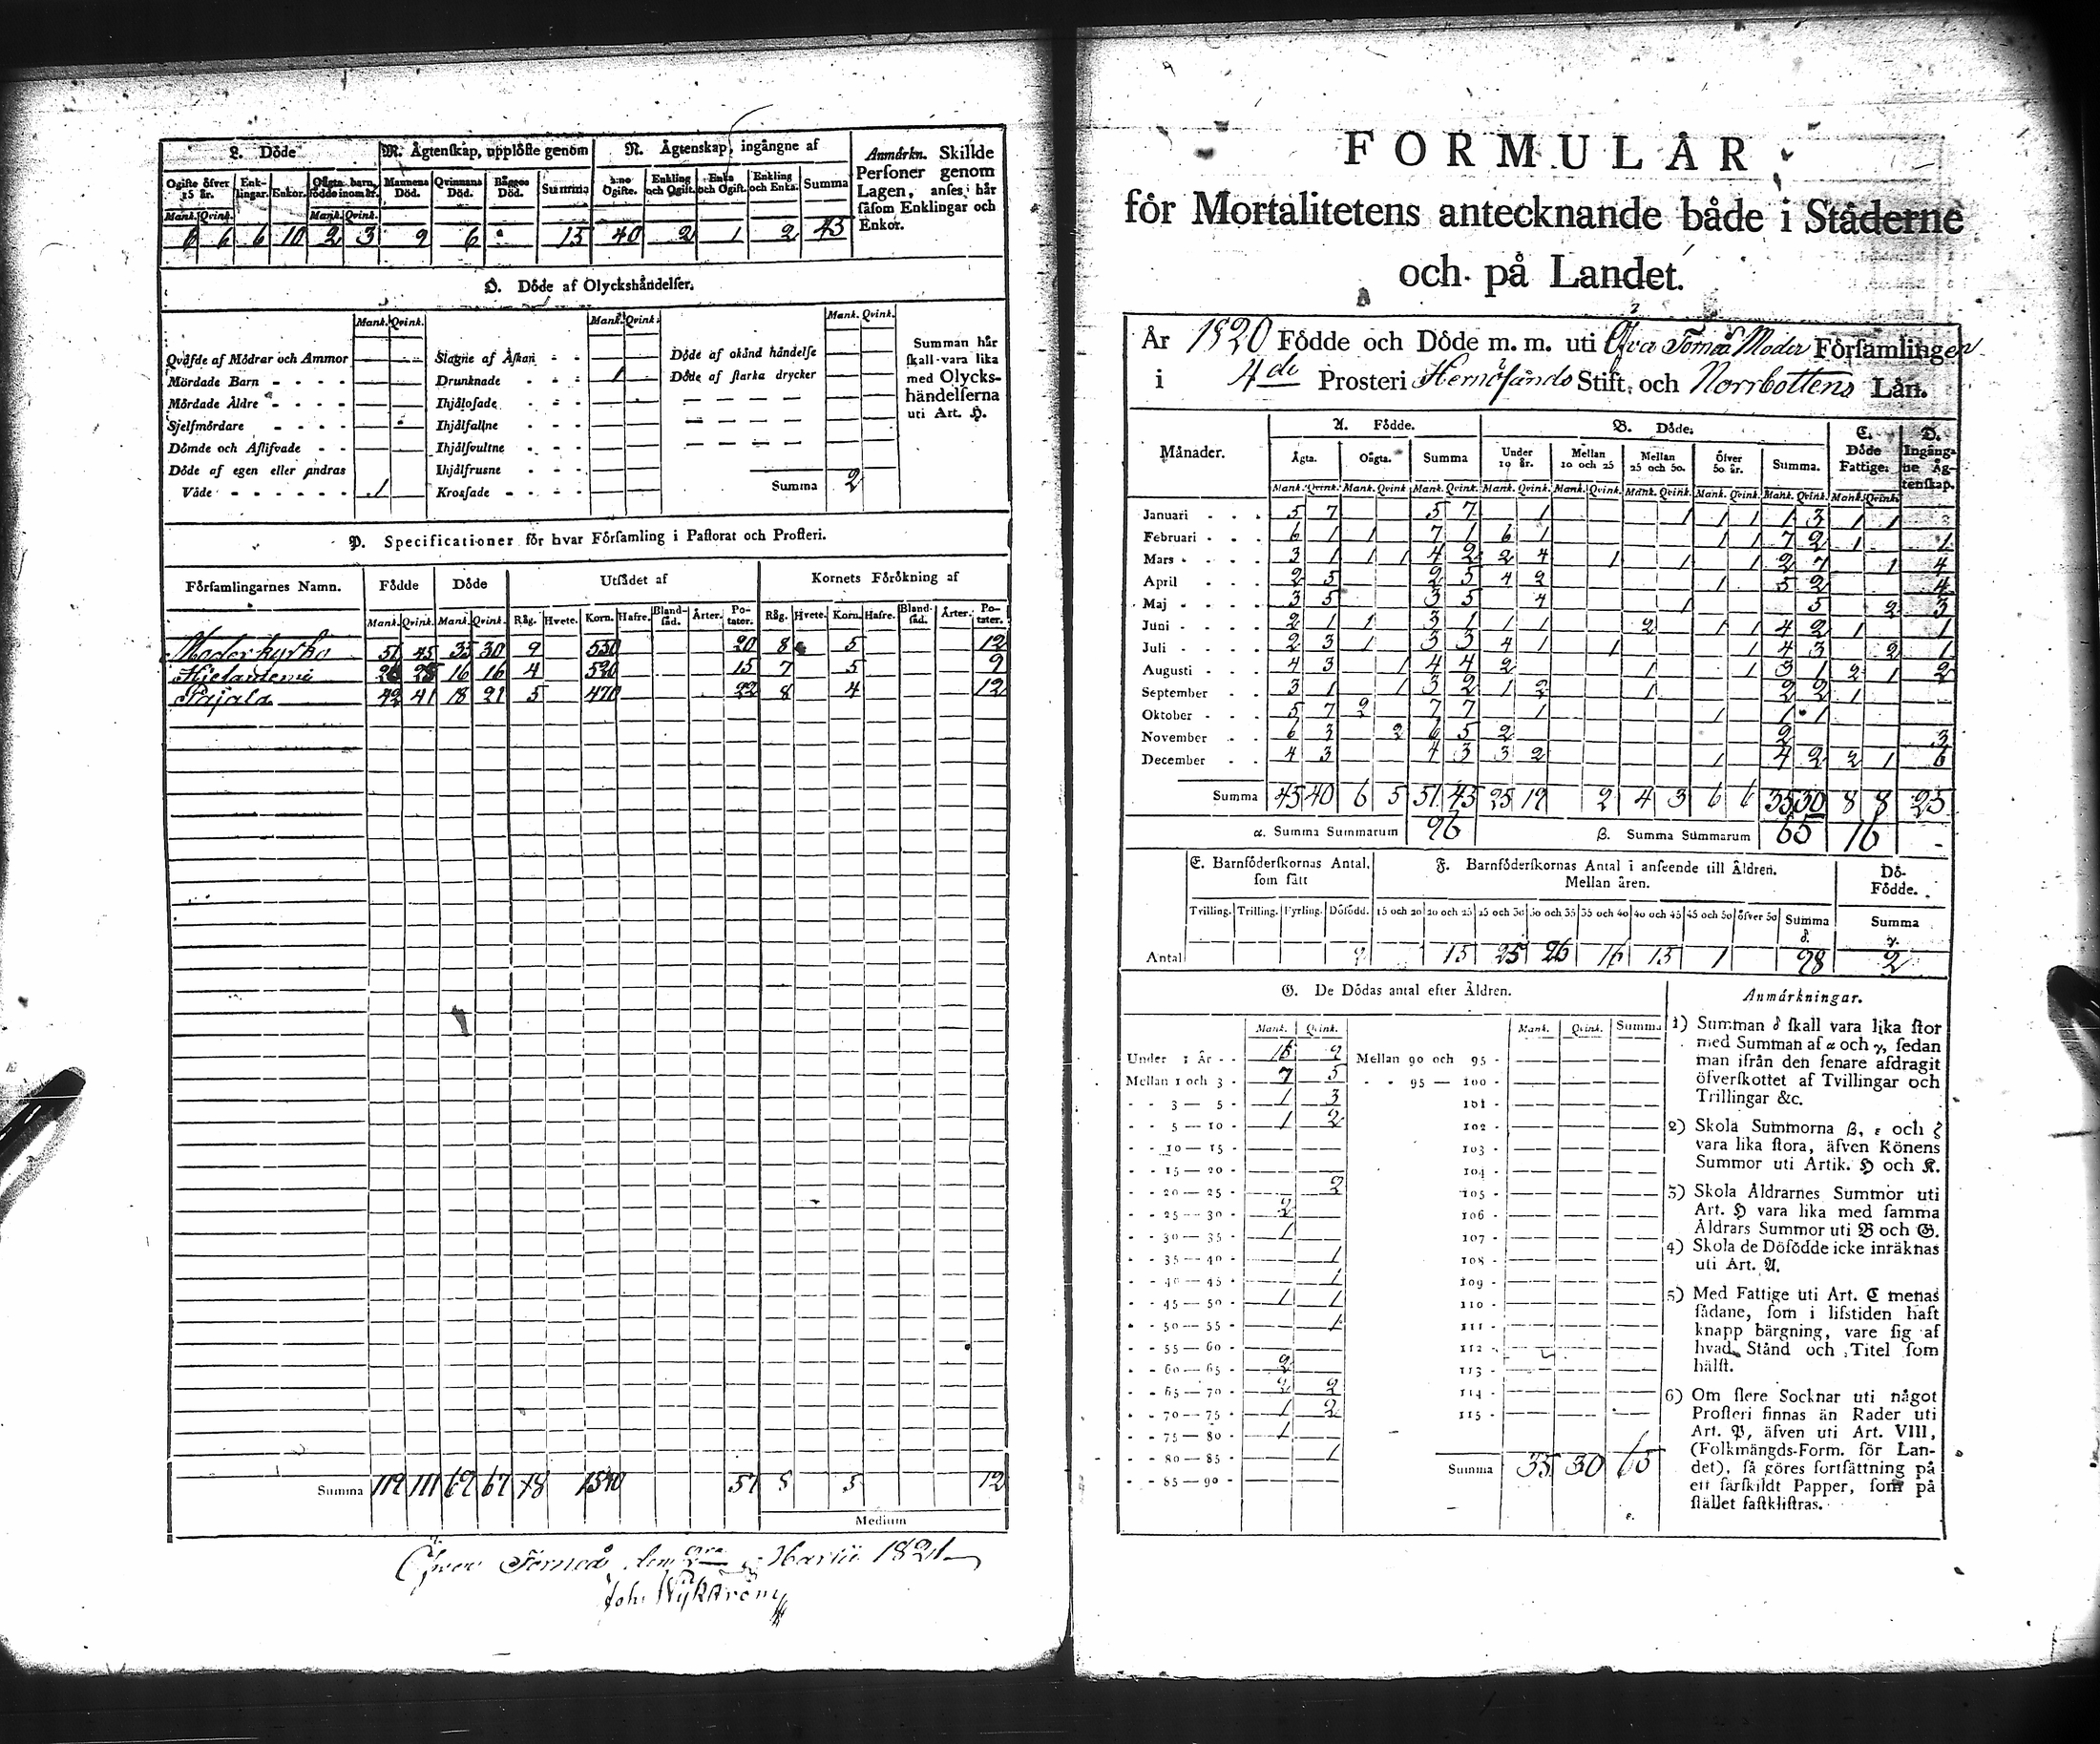 L. Döde
M. Ägtenskap, upplöste genom
N. Ägtenskap, ingångne af
Anmärkn. Skillde Personer genom Lagen, anses här såsom Enklingar och Enkor.
Ogifte öfver 15 år. Enklingar. Enkor. Oägta barn, födde inom år. Mannens Död. Qvinnans Död. Bägges Död. Summa Ogifte. Enkling och Ogift. Enka och Ogift. Enkling och Enka. Summa
Mank. Qvink. Mank. Qvink.
6 6 6 10 2 3 9 6 15 40 2 1 2 45
O. Döde af Olyckshändelser.
Mank. Qvink. Mank. Qvink. Mank. Qvink.
Qväfde af Mödrar och Ammor
Mördade Barn
Mördade Äldre
Sjelfmördare
Dömde och Aflifvade
Döde af egen eller andras
Våde 1
Slagne af Åskan
Drunknade 1
Ihjälosade
Ihjälfallne
Ihjälsvultne
Ihjälfrusne
Krossade
Döde af okänd händelse
Döde af starka drycker
Summa 2
Summan här skall vara lika med Olyckshändelserna uti Art. H.
P. Specificationer för hvar Församling i Pastorat och Prosteri.
Församlingarnes Namn. Födde Döde Utsädet af Kornets Förökning af
Mank. Qvink. Mank. Qvink. Råg. Hvete. Korn. Hafre. Blandsäd. Ärter. Potater. Råg. Hvete. Korn. Hafre. Blandsäd. Ärter. Potater.
Moderkyrka 51 45 35 30 9 550 20 8 5 12
Hietaniemi 26 25 16 16 4 520 15 7 5 9
Pajala 42 41 18 21 5 470 22 8 4 12
Summa 119 111 69 67 18 1540 57 8 5 12
Medium
Öfver Torneå den Martii 1821
Joh. Wykström
FORMULÄR
för Mortalitetens antecknande både i Städerne
och på Landet.
År 1820 Födde och Döde m. m. uti Öfver Torneå Moder Församlingen
i 4de Prosteri Hernösands Stift, och Norrbottens Län.
Månader. A. Födde. B. Döde. C. Döde Fattige. D. Ingångne Ägtenskap.
Ägta. Oägta. Summa Under 10 år. Mellan 10 och 25 Mellan 25 och 50. Öfver 50 år. Summa.
Mank. Qvink. Mank. Qvink. Mank. Qvink. Mank. Qvink. Mank. Qvink. Mank. Qvink. Mank. Qvink. Mank. Qvink. Mank. Qvink.
Januari 5 7 5 7 1 1 1 1 1 3 1 1
Februari 6 1 1 7 1 6 1 1 1 7 2 1 1
Mars 3 1 1 1 4 2 2 4 1 1 1 2 7 1 4
April 2 5 2 5 4 2 1 5 2 4
Maj 3 5 3 5 4 1 5 2 3
Juni 2 1 1 3 1 1 1 2 1 1 4 2 1 1
Juli 2 3 1 3 3 4 1 1 1 4 3 2 1
Augusti 4 3 1 4 4 2 1 1 3 1 2 1 2
September 3 1 1 3 2 1 2 1 2 2 1
Oktober 5 7 2 7 7 1 1 1 1
November 6 3 2 6 5 2 2 3
December 4 3 4 3 3 2 1 4 2 2 1 6
Summa 45 40 6 5 51 45 25 19 2 4 3 6 6 35 30 8 8 25
α. Summa Summarum 96 β. Summa Summarum 65 16
E. Barnföderskornas Antal, som fått
F. Barnföderskornas Antal i anseende till Åldren. Mellan åren.
DöFödde.
Trilling. Trilling. Fyrling. Döfödd. 15 och 20 20 och 25 25 och 30 30 och 35 35 och 40 40 och 45 45 och 50 öfver 50 Summa δ. Summa γ.
Antal 2 15 25 26 16 15 1 98 2
G. De Dödas antal efter Åldren.
Mank. Qvink. Mank. Qvink. Summa
Under 1 År 15 9 Mellan 90 och 95
Mellan 1 och 3 7 5 95 — 100
3 — 5 1 3 101
5 — 10 1 2 102
10 — 15 103
15 — 20 104
20 — 25 2 105
25 — 30 2 106
30 — 35 1 107
35 — 40 1 108
40 — 45 1 109
45 — 50 1 1 110
50 — 55 1 111
55 — 60 112
60 — 65 2 113
65 — 70 2 2 114
70 — 75 1 2 115
75 — 80 1
80 — 85 1
85 — 90
Summa 35 30 65
ε.
Anmärkningar.
1) Summan δ skall vara lika stor
med Summan af α och γ, sedan
man ifrån den senare afdragit
öfverskottet af Tvillingar och
Trillingar &c.
2) Skola Summorna β, ε och ζ
vara lika stora, äfven Könens
Summor uti Artik. H och K.
3) Skola Åldrarnes Summor uti
Art. H vara lika med samma
Åldrars Summor uti B och G.
4) Skola de Döfödde icke inräknas
uti Art. A.
5) Med Fattige uti Art. C menas
sådane, som i lifstiden haft
knapp bärgning, vare sig af
hvad Stånd och Titel som
hälst.
6) Om flere Socknar uti något
Prosteri finnas än Rader uti
Art. P, äfven uti Art. VIII,
(Folkmängds-Form. för Landet), så göres fortsättning på
ett särskildt Papper, som på
stället fastklistras.